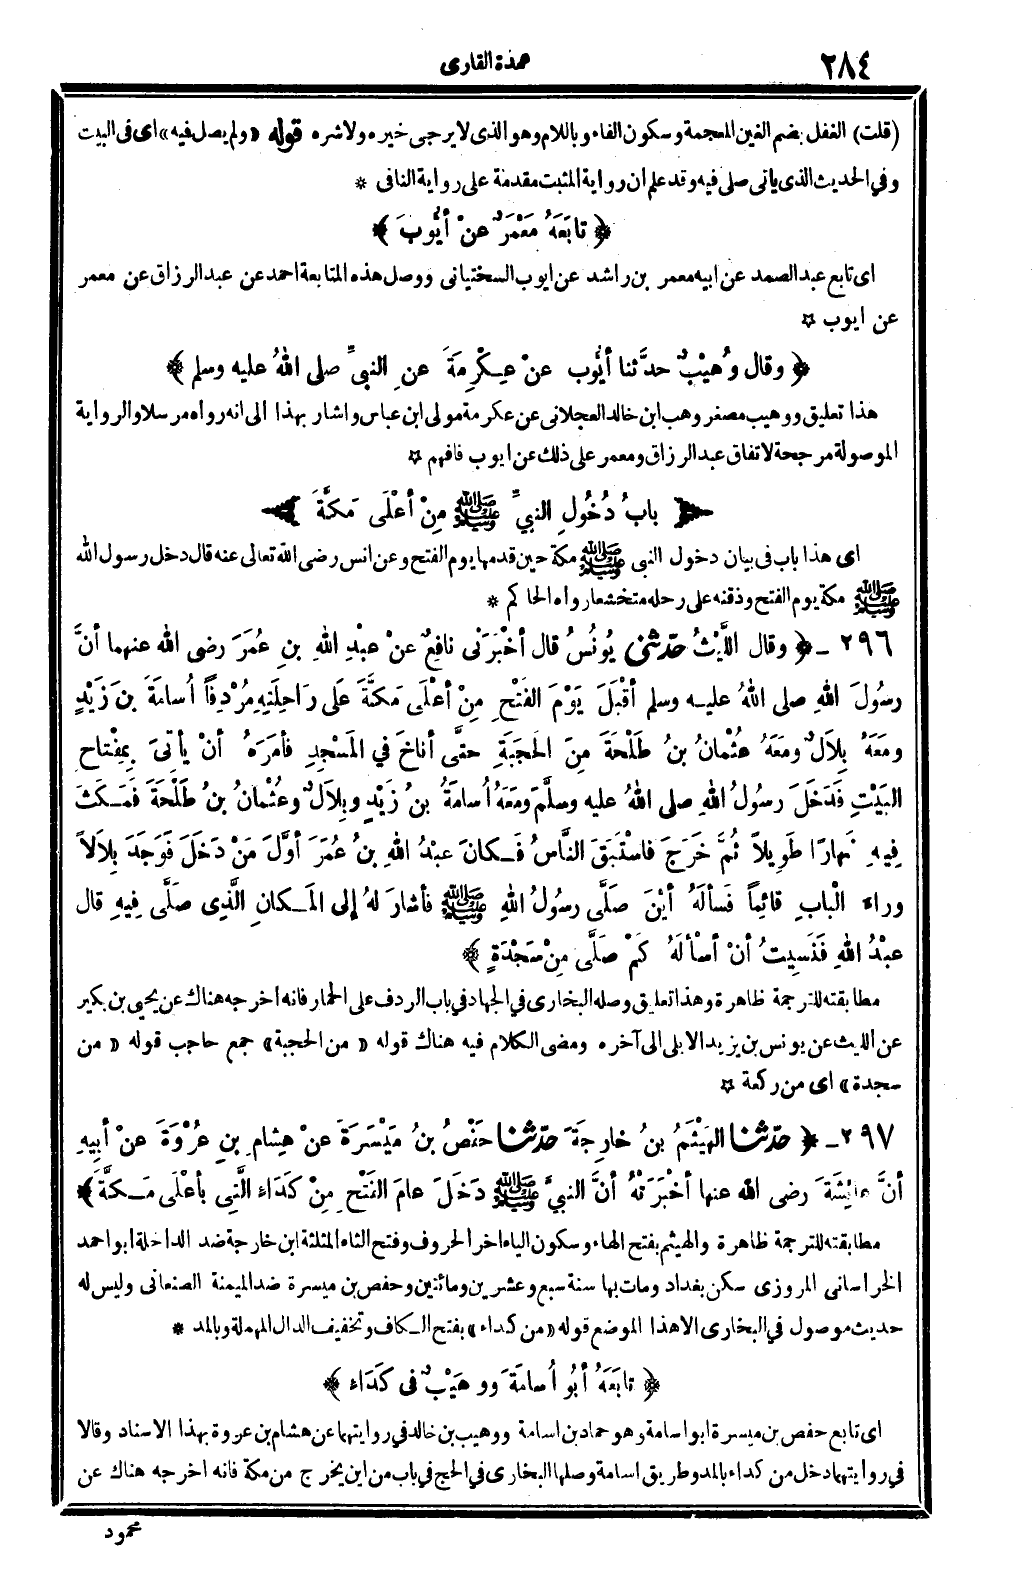 ٢٨٤
عمدة القارى
(قلت) الغفل بضم الغين المعجمة وسكون الفاء وباللام وهو الذى لا يرجى خيره ولا شره قوله «ولم يصل فيه» اى فى البيت
وفي الحديث الذى يأتى صلى فيه وقد علم ان رواية المثبت مقدمة على رواية النافى *
﴿ تابَعَهُ مَعْمَرٌ عنْ أيُّوبَ ﴾
اى تابع عبد الصمد عن ابيه معمر بن راشد عن ايوب السختيانى ووصل هذه المتابعة احمد عن عبد الرزاق عن معمر
عن ايوب ☆
﴿ وقال وُهَيْبٌ حدَّثنا أيُّوب عنْ عِكْرِمَةَ عنِ النبىِّ صلى اللهُ عليه وسلم ﴾
هذا تعليق ووهيب مصغر وهب ابن خالد العجلانى عن عكرمة مولى ابن عباس واشار بهذا الى انه رواه مرسلا والرواية
الموصولة مرجحة لاتفاق عبد الرزاق ومعمر على ذلك عن ايوب فافهم ☆
باب دُخُولِ النبيِّ ﷺ مِنْ أعْلَى مَكَّةَ
اى هذا باب فى بيان دخول النبى ﷺ مكة حين قدمها يوم الفتح وعن انس رضى الله تعالى عنه قال دخل رسول الله
ﷺ مكة يوم الفتح وذقنه على رحله متخشعا رواه الحاكم *
٢٩٦ ـ ﴿ وقال اللَّيْثُ حدّثنى يُونُسُ قال أخْبَرَنى نافِعٌ عنْ عبْدِ اللهِ بنِ عُمَرَ رضى الله عنهما أنَّ
رسُولَ اللهِ صلى اللهُ عليه وسلم أقْبَلَ يَوْمَ الفَتْحِ مِنْ أعْلَى مَكَّةَ عَلَى رَاحِلَتِهِ مُرْدِفاً أُسامَةَ بنَ زَيْدٍ
ومَعَهُ بِلاَلٌ ومَعَهُ عُثْمانُ بنُ طَلْحَةَ مِنَ الحَجَبَةِ حتَّى أناخَ فى المَسْجِدِ فأمَرَهُ أنْ يأتىَ بِمِفْتاحِ
البَيْتِ فَدَخَلَ رسولُ اللهِ صلى اللهُ عليه وسلَّمَ ومَعَهُ أُسامَةُ بنُ زَيْدٍ وبِلاَلٌ وعُثْمانُ بنُ طَلْحَةَ فَمَكَثَ
فِيهِ نَهارًا طَوِيلاً ثُمَّ خَرَجَ فاسْتَبَقَ النَّاسُ فَكانَ عبْدُ اللهِ بنُ عُمَرَ أوَّلَ مَنْ دَخَلَ فَوَجَدَ بِلاَلاً
وراءَ الْبابِ قائِماً فَسألَهُ أيْنَ صَلَّى رسُولُ اللهِ ﷺ فأشارَ لهُ إلى المَكانِ الَّذِى صَلَّى فِيهِ قال
عبْدُ اللهِ فَنَسِيتُ أنْ أسْألَهُ كَمْ صَلَّى مِنْ سَجْدَةٍ ﴾
مطابقته للترجمة ظاهرة وهذا تعليق وصله البخارى فى الجهاد فى باب الردف على الحمار فانه اخرجه هناك عن يحيى بن بكير
عن الليث عن يونس بن يزيد الايلى الى آخره ومضى الكلام فيه هناك قوله «من الحجبة» جمع حاجب قوله «من
سجدة» اى من ركعة ☆
٢٩٧ ـ ﴿ حدّثنا الهَيْثَمُ بنُ خارِجَةَ حدّثنا حَفْصُ بنُ مَيْسَرَةَ عنْ هِشامِ بنِ عُرْوَةَ عنْ أبِيهِ
أنَّ عائِشَةَ رضى الله عنها أخْبَرَتْهُ أنَّ النبىَّ ﷺ دَخَلَ عامَ الفَتْحِ مِنْ كَدَاءَ الَّتِى بأعْلَى مَكَّةَ ﴾
مطابقته للترجمة ظاهرة والهيثم بفتح الهاء وسكون الياء اخر الحروف وفتح الثاء المثلثة ابن خارجة ضد الداخلة ابو احمد
الخراسانى المروزى سكن بغداد ومات بها سنة سبع وعشرين ومائتين وحفص بن ميسرة ضد الميمنة الصنعانى وليس له
حديث موصول فى البخارى الا هذا الموضع قوله «من كداء» بفتح الكاف وتخفيف الدال المهملة وبالمد *
﴿ تابَعَهُ أبُو أُسامَةَ ووهَيْبٌ فى كَدَاءَ ﴾
اى تابع حفص بن ميسرة ابو اسامة وهو حماد بن اسامة ووهيب بن خالد فى روايتهما عن هشام بن عروة بهذا الاسناد وقالا
فى روايتهما دخل من كداء بالمد وطريق اسامة وصلها البخارى فى الحج فى باب من اين يخرج من مكة فانه اخرجه هناك عن
محمود